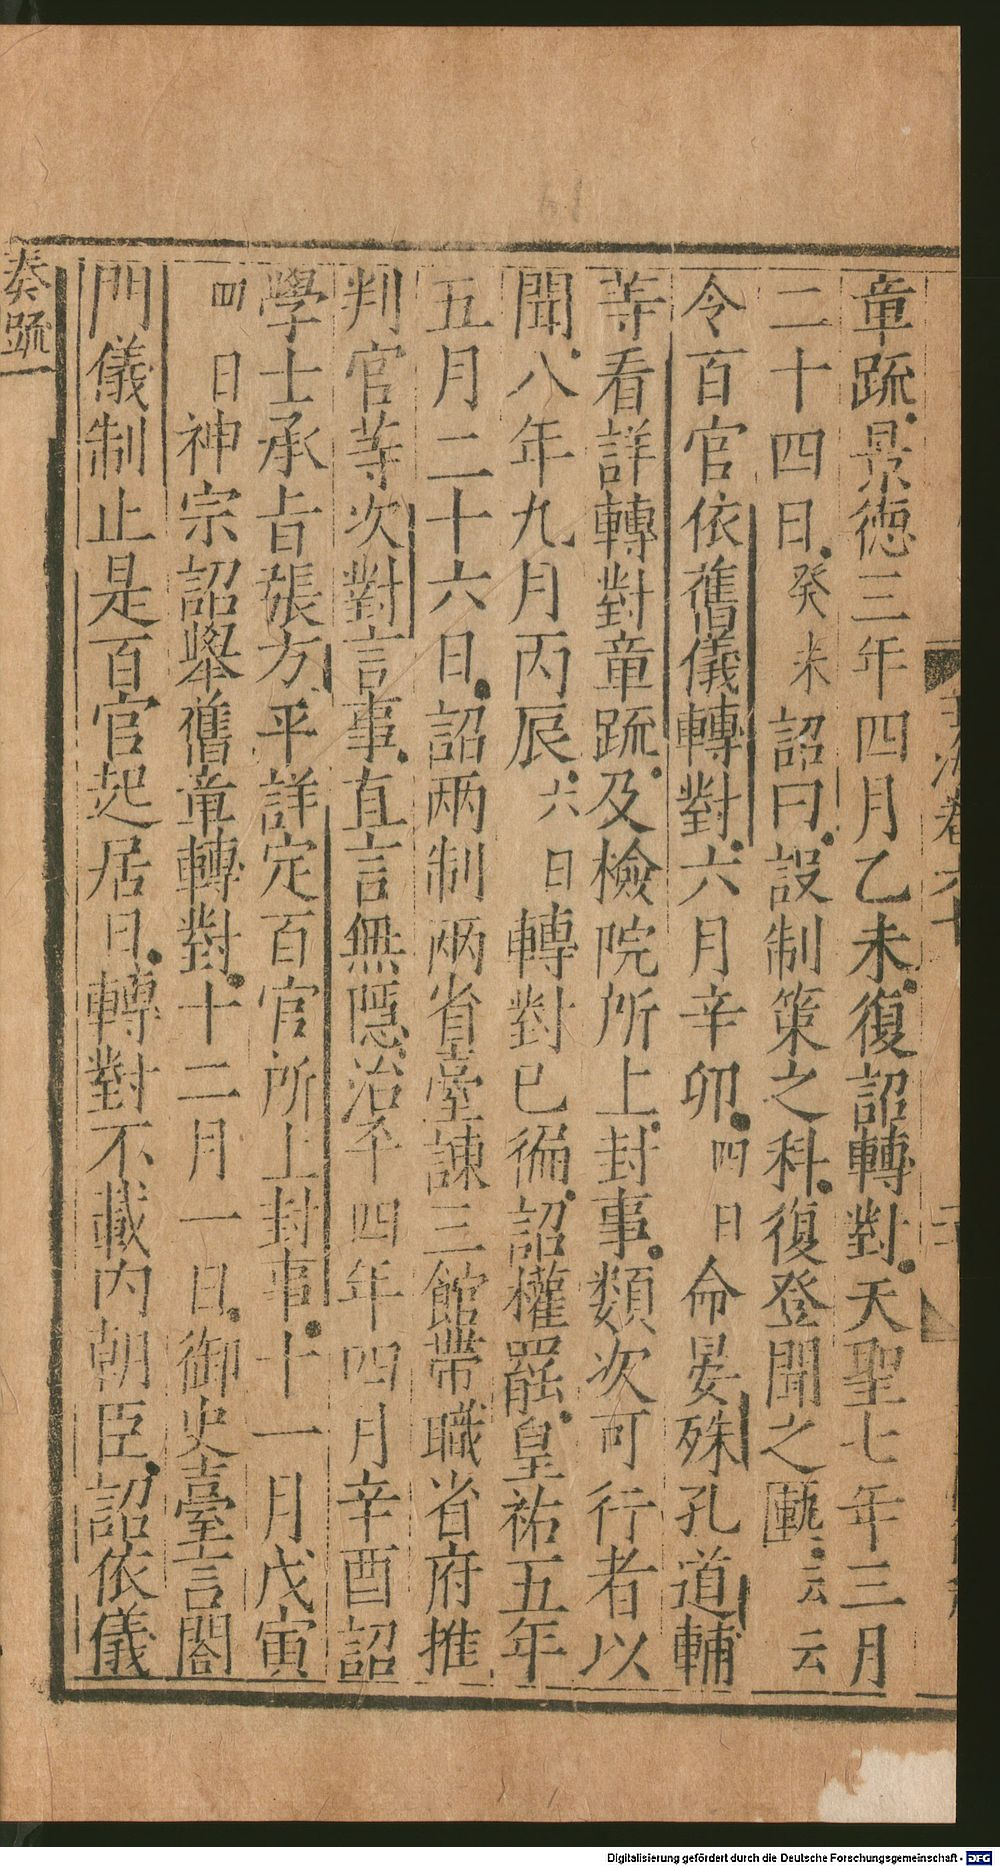 章䟽景德三年四月乙未復詔轉對天聖七年三月
二十四日癸未詔曰設制策之科復登聞之匭云云
令百官依舊儀轉對六月辛卯四日命晏殊孔道輔
等看詳轉對章䟽及檢院所上封事類次可行者以
聞八年九月丙辰六日轉對已徧詔權罷皇祐五年
五月二十六日詔兩制兩省臺諫三館帶職省府推
判官等次對言事直言無隱治平四年四月辛酉詔
學士承旨張方平詳定百官所上封事十一月戊寅
四日神宗詔舉舊章轉對十二月一日御史臺言閤
門儀制止是百官起居日轉對不載內朝臣詔依儀
奏䟽
Digitalisierung gefördert durch die Deutsche Forschungsgemeinschaft - DFG